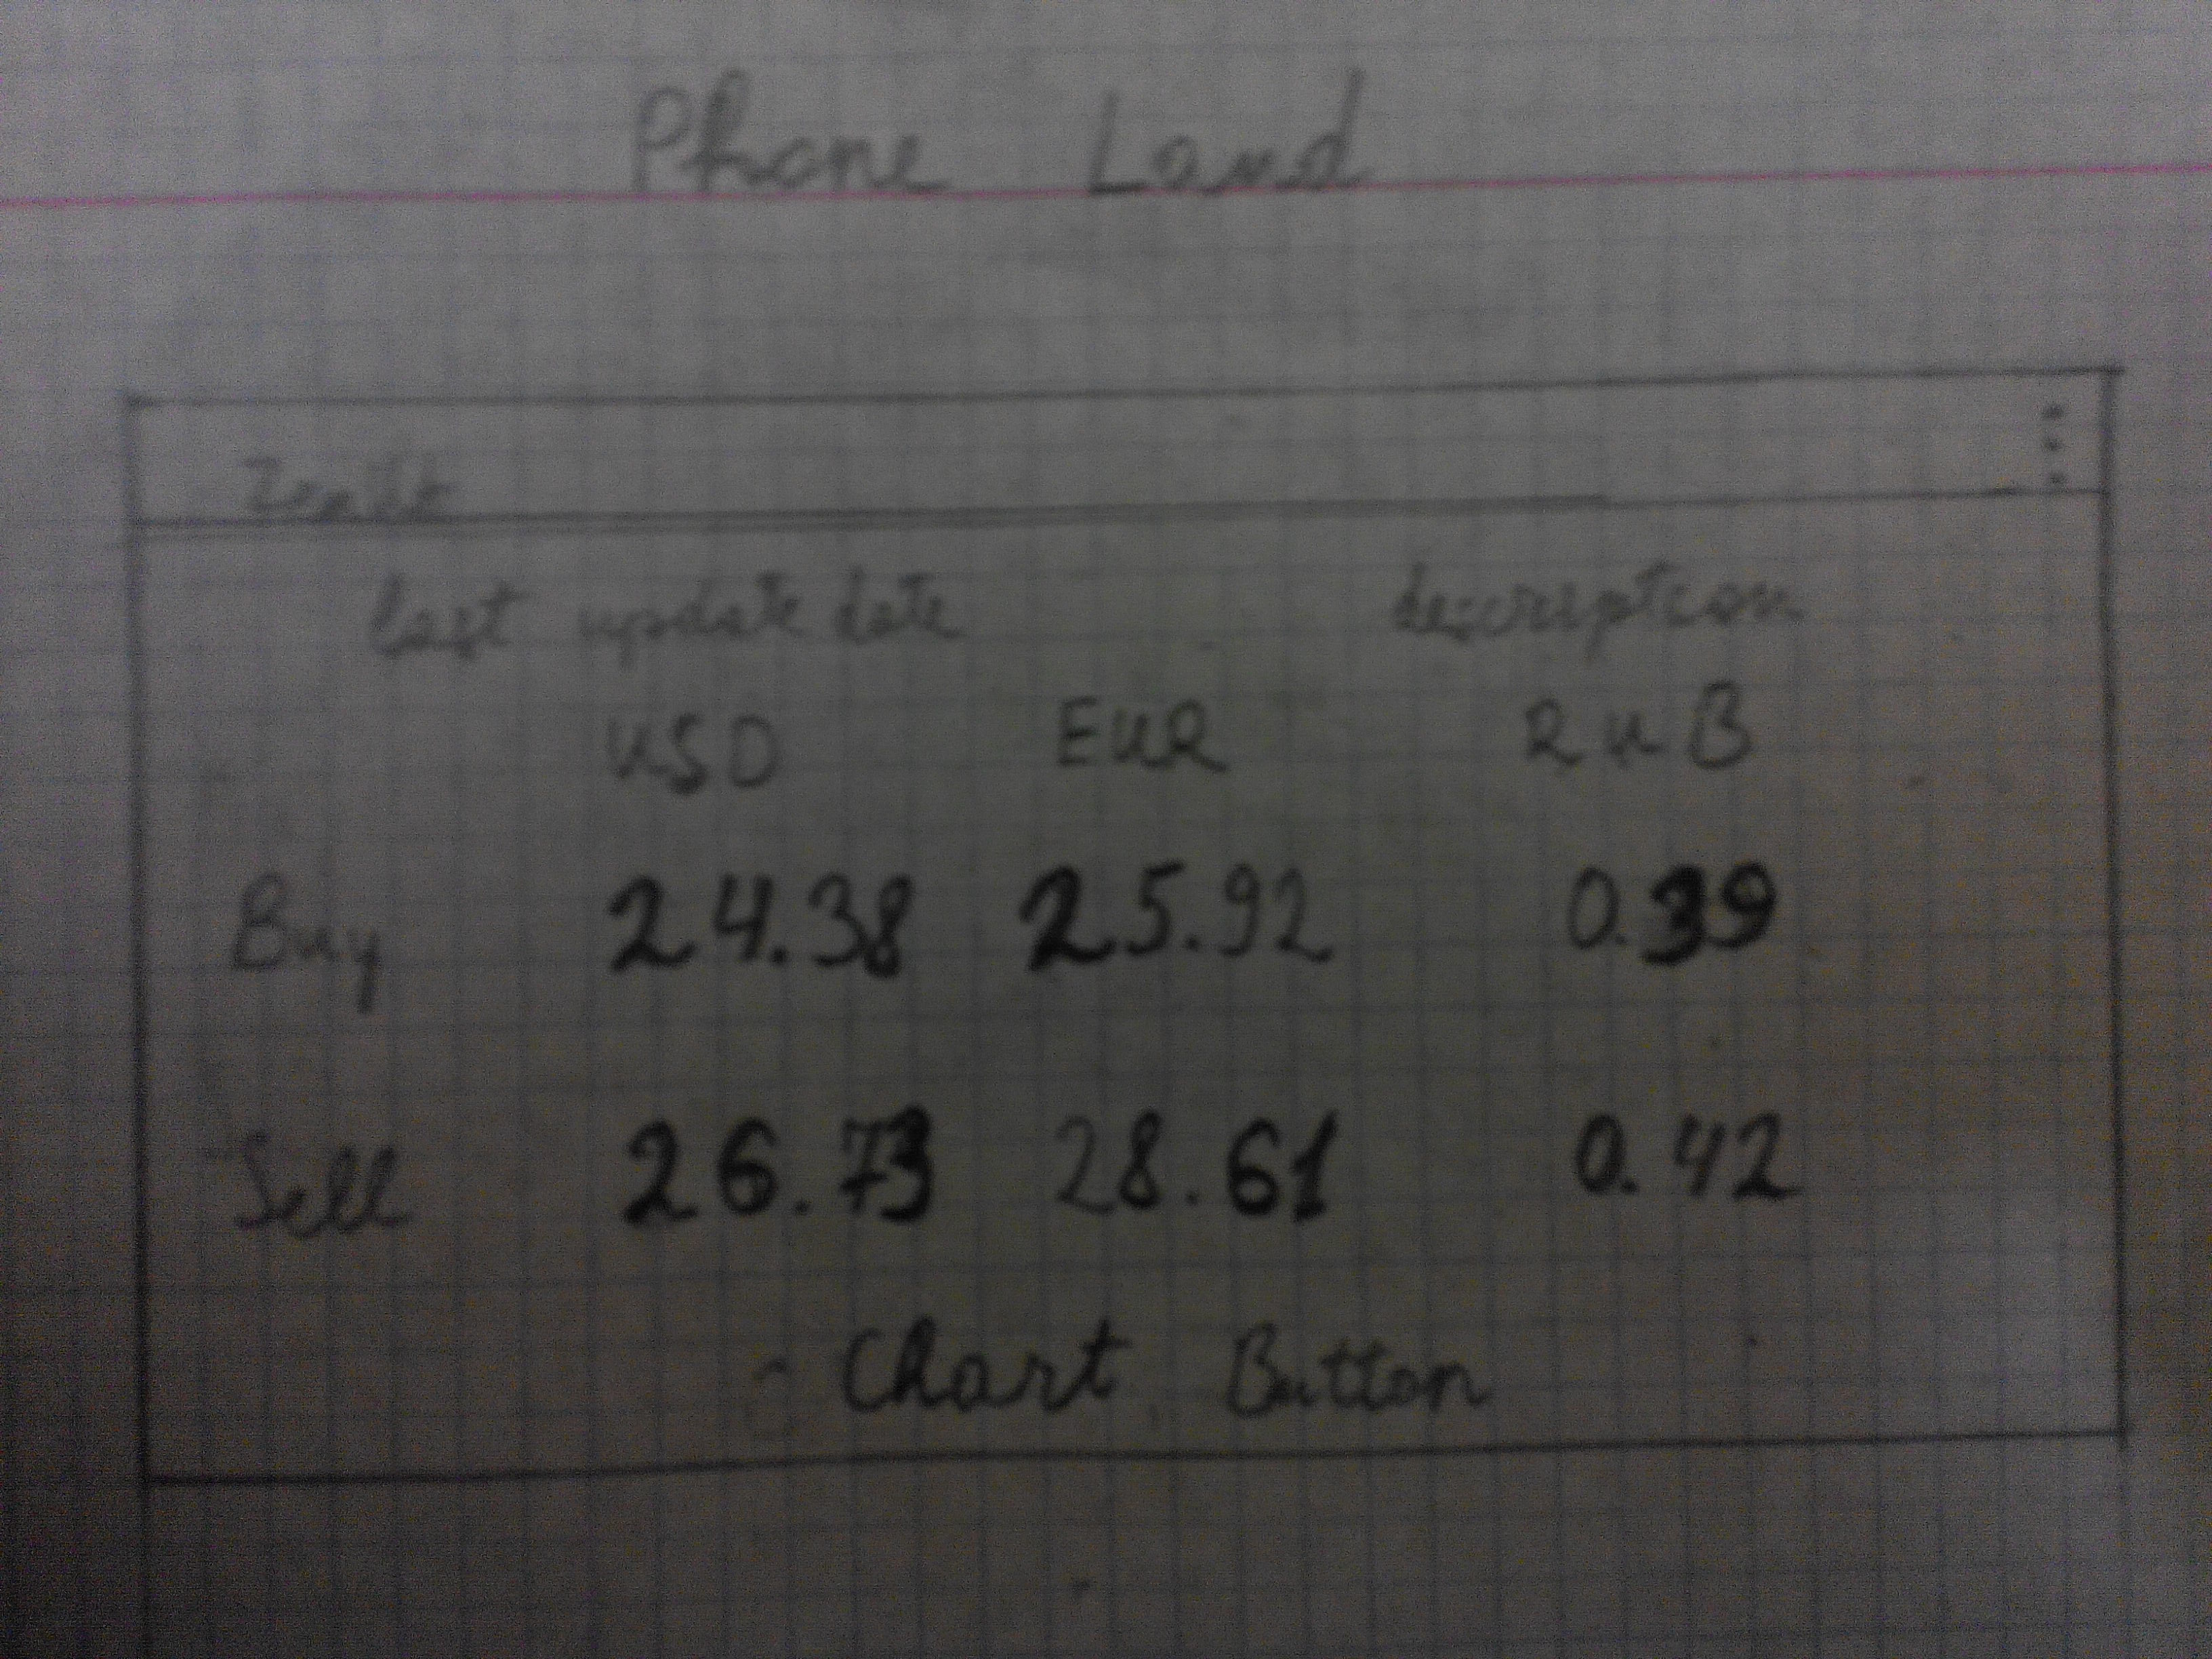 Phone Land
Zenith
last update date description
USD EUR RUB
Buy 24.38 25.92 0.39
Sell 26.73 28.61 0.42
Chart Button